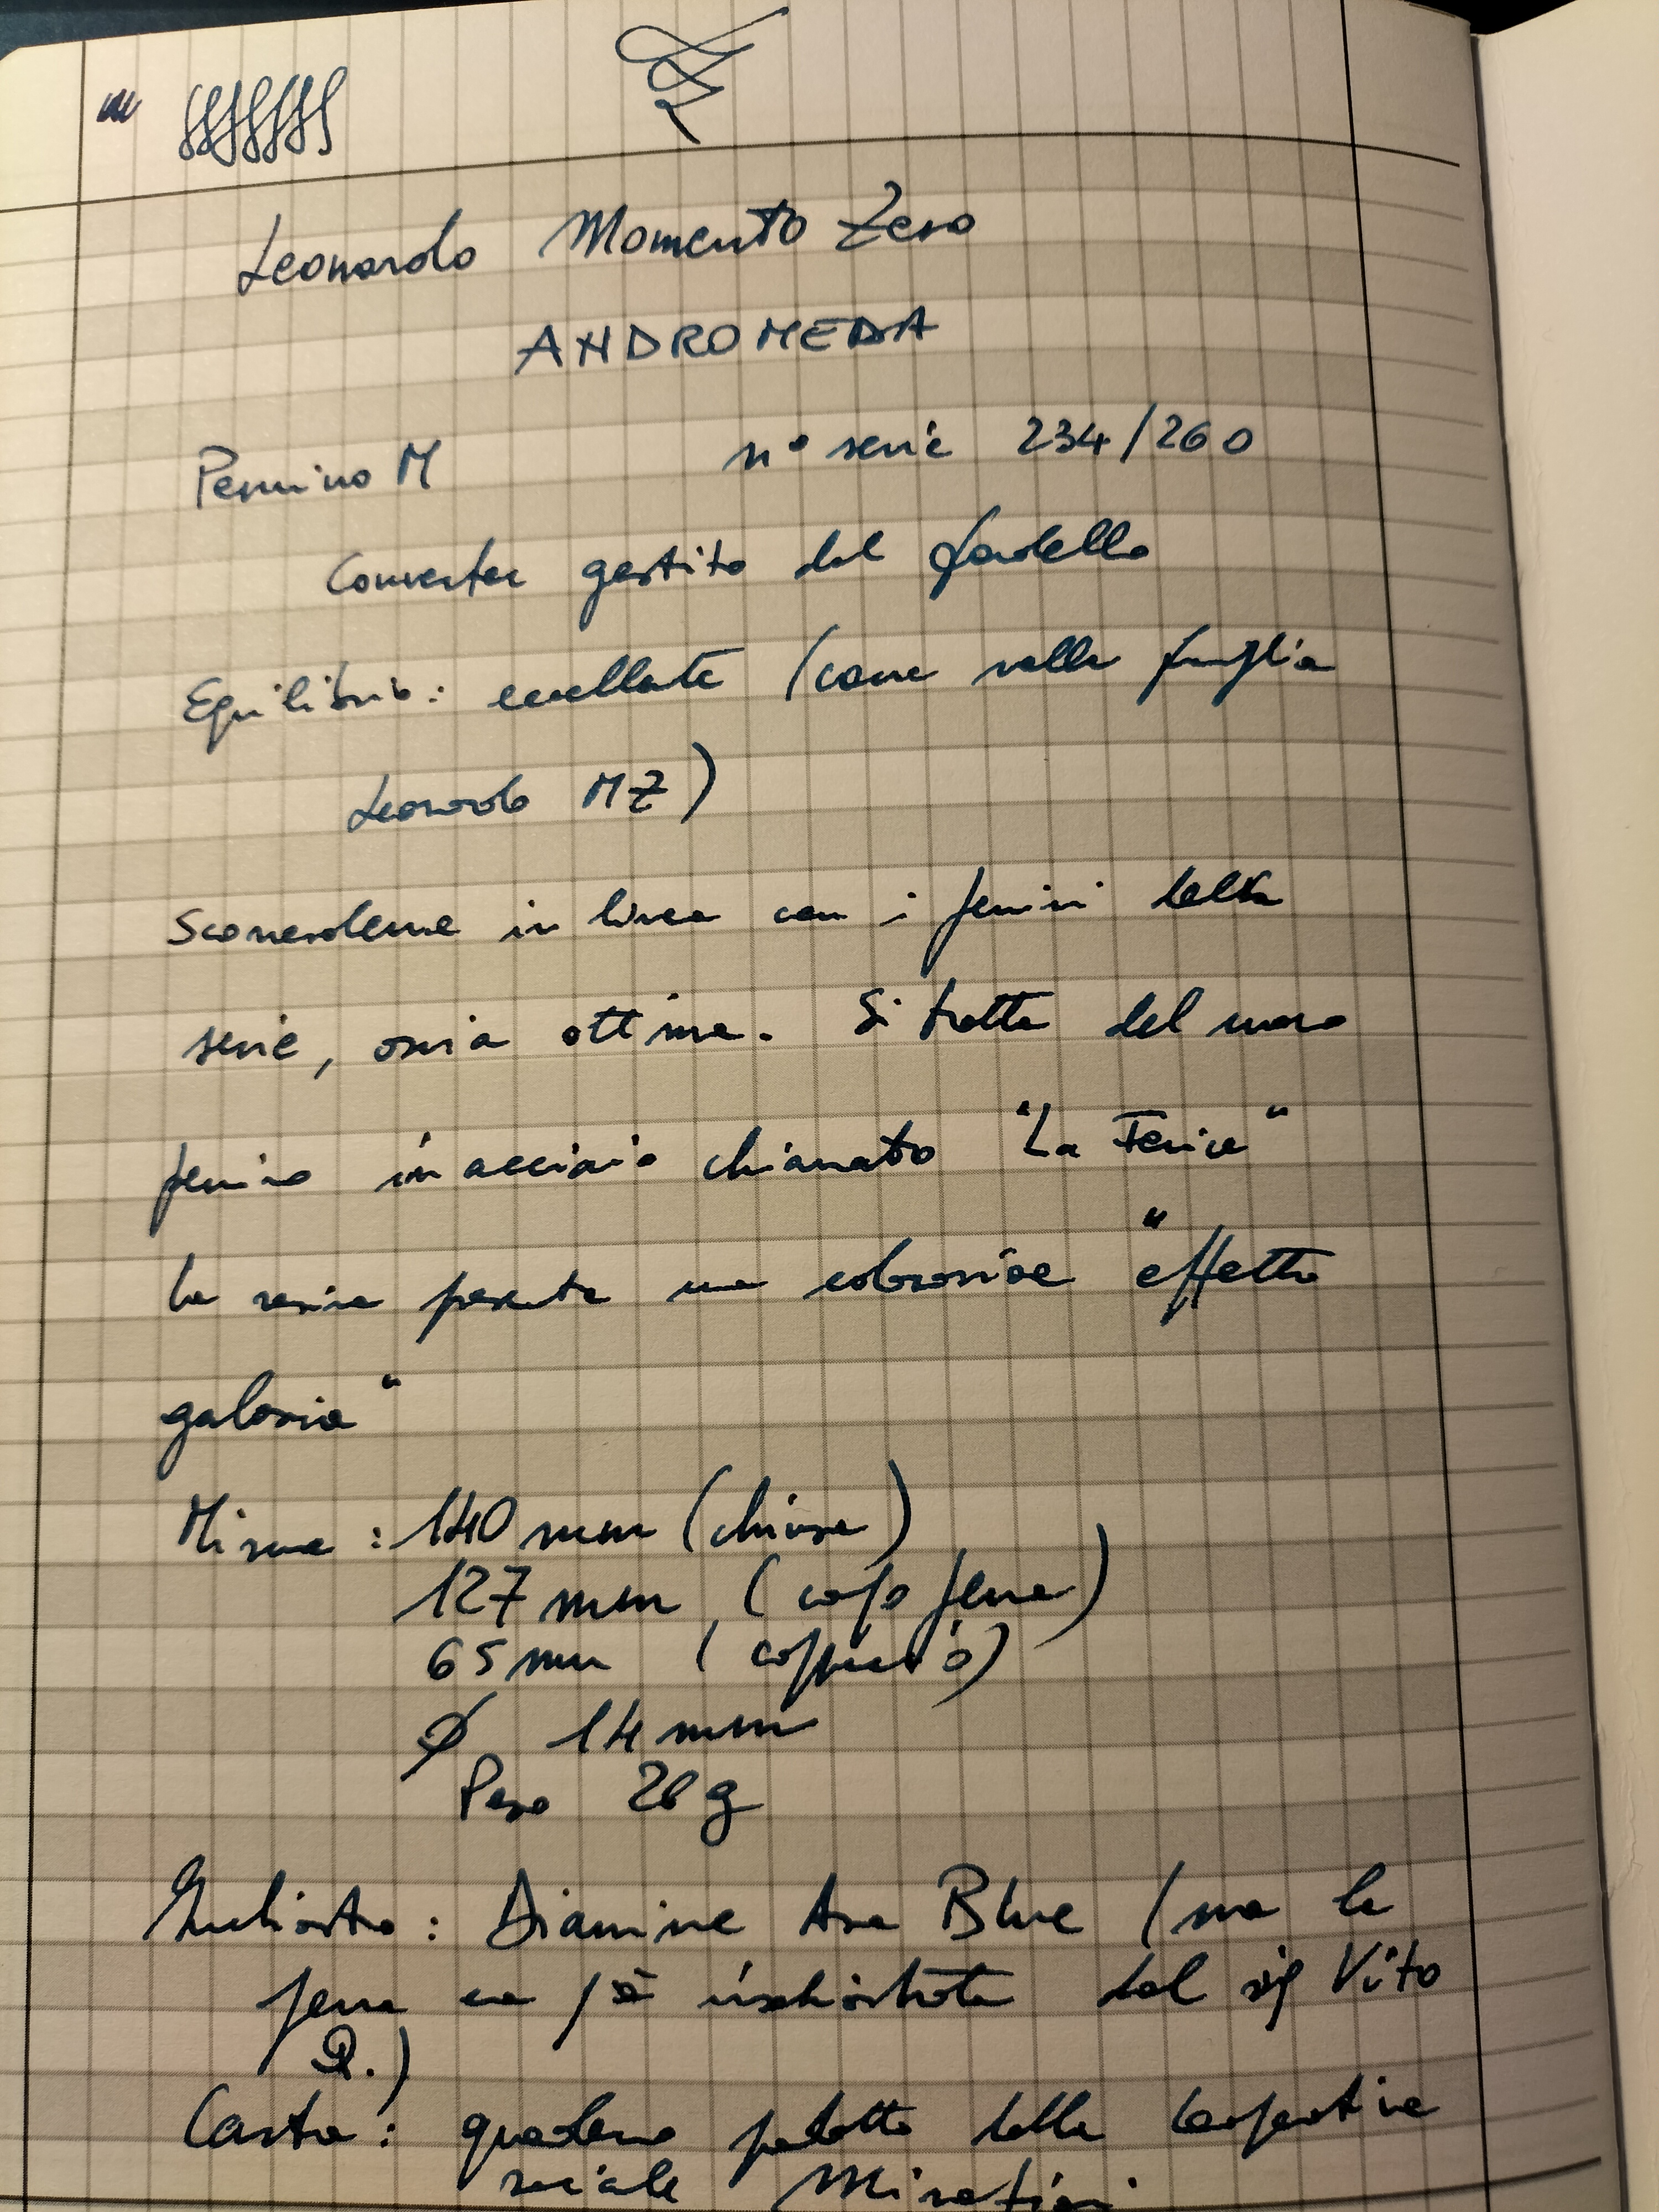 Leonardo Momento Zero
ANDROMEDA
Pennino M n° serie 234/260
Converter gestito dal fondello
Equilibrio: eccellente (come nella famiglia
Leonardo MZ)
Scorrevolezza in linea con i pennini della
serie, ossia ottima. Si tratta del nuovo
pennino in acciaio chiamato "La Fenice"
La resina presenta una colorazione "effetto
galassia"
Misure: 140 mm (chiusa)
127 mm (corpo penna)
65 mm (cappuccio)
Ø 14 mm
Peso 26 g
Inchiostro: Diamine Asa Blue (ma la
penna era già inchiostrata dal sig Vito
Carta: quaderno prodotto dalla cooperativa
sociale